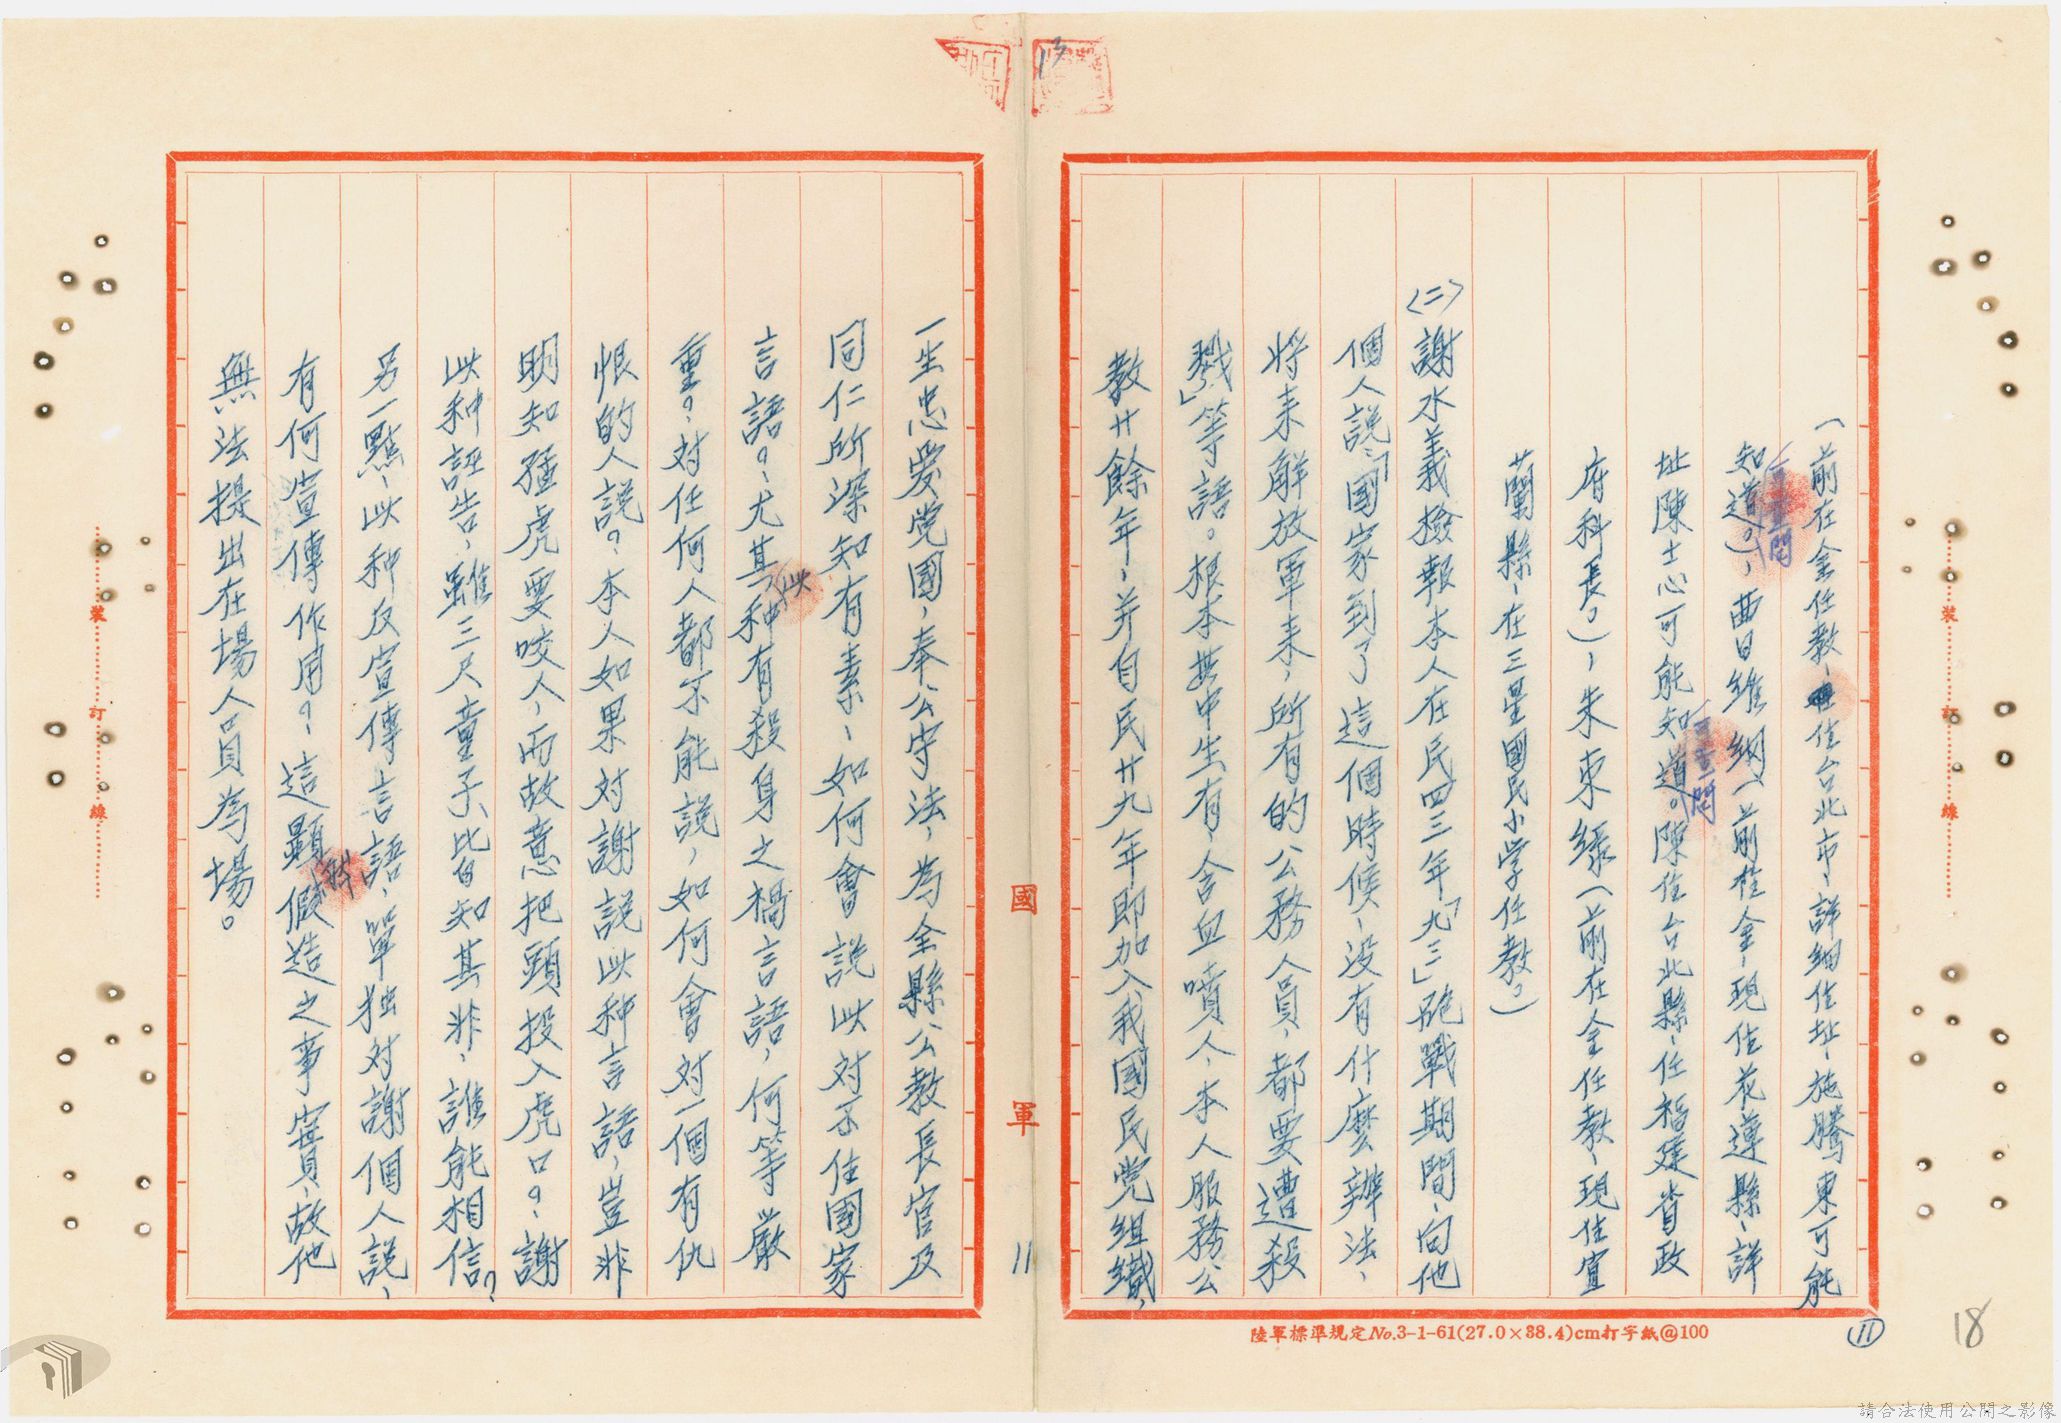 （前在金任教、住台北市、詳細住址、施騰東可能
知道。）、曲日維綱（前在金、現住花蓮縣、詳
址陳士心可能知道。陳住台北縣、任福建省政
府科長？）、朱束綠（前在金任教、現住宜
蘭縣、在三星國民小学任教？）
〈二〉謝水義檢報本人在民四三年「九三」砲戰期間、向他
個人說：「國家到了這個時候、没有什麼辦法、
將来解放軍来、所有的公務人員、都要遭殺
戮」等語。根本無中生有、含血噴人、本人服務公
教廿餘年、并自民廿九年即加入我國民党組織、
一生忠爱党國、奉公守法、為全縣公教長官及
同仁所深知有素、如何會說此对不住國家
言語？、尤其此种有殺身之禍言語、何等嚴
重？、对任何人都不能說、如何會对一個有仇
恨的人說？、本人如果对謝說此种言語、豈非
明知猛虎要咬人、而故意把頭投入虎口？、謝
此种誣告、雖三尺童子、皆知其非、誰能相信？、
另一點、此种反宣傳言語、單独对謝個人說、
有何宣傳作用？、這顯假造之事實、故他
無法提出在場人員為場。
國軍
11
13
⑪
18
裝 訂 線
裝 訂 線
陸軍標準規定No.3-1-61(27.0×38.4)cm打字紙@100
請合法使用公開之影像